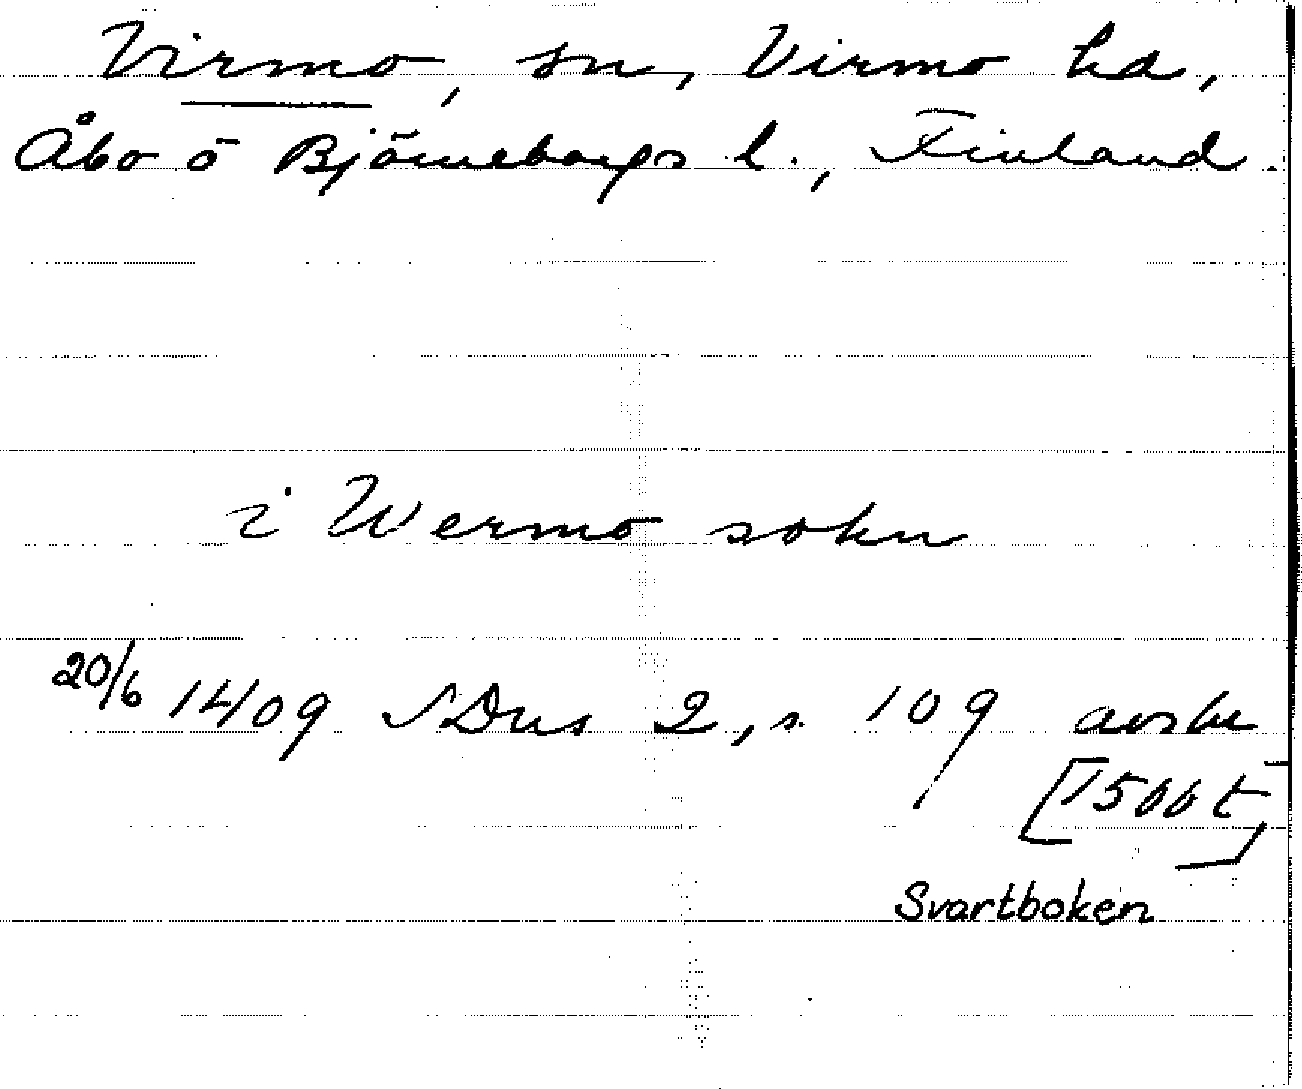 Virmo, sn, Virmo hd,
Åbo o Björneborgs l., Finland.
i Wermo sokn
20/6 1409 SDns 2, s. 109 avskr
[1500 t]
Svartboken